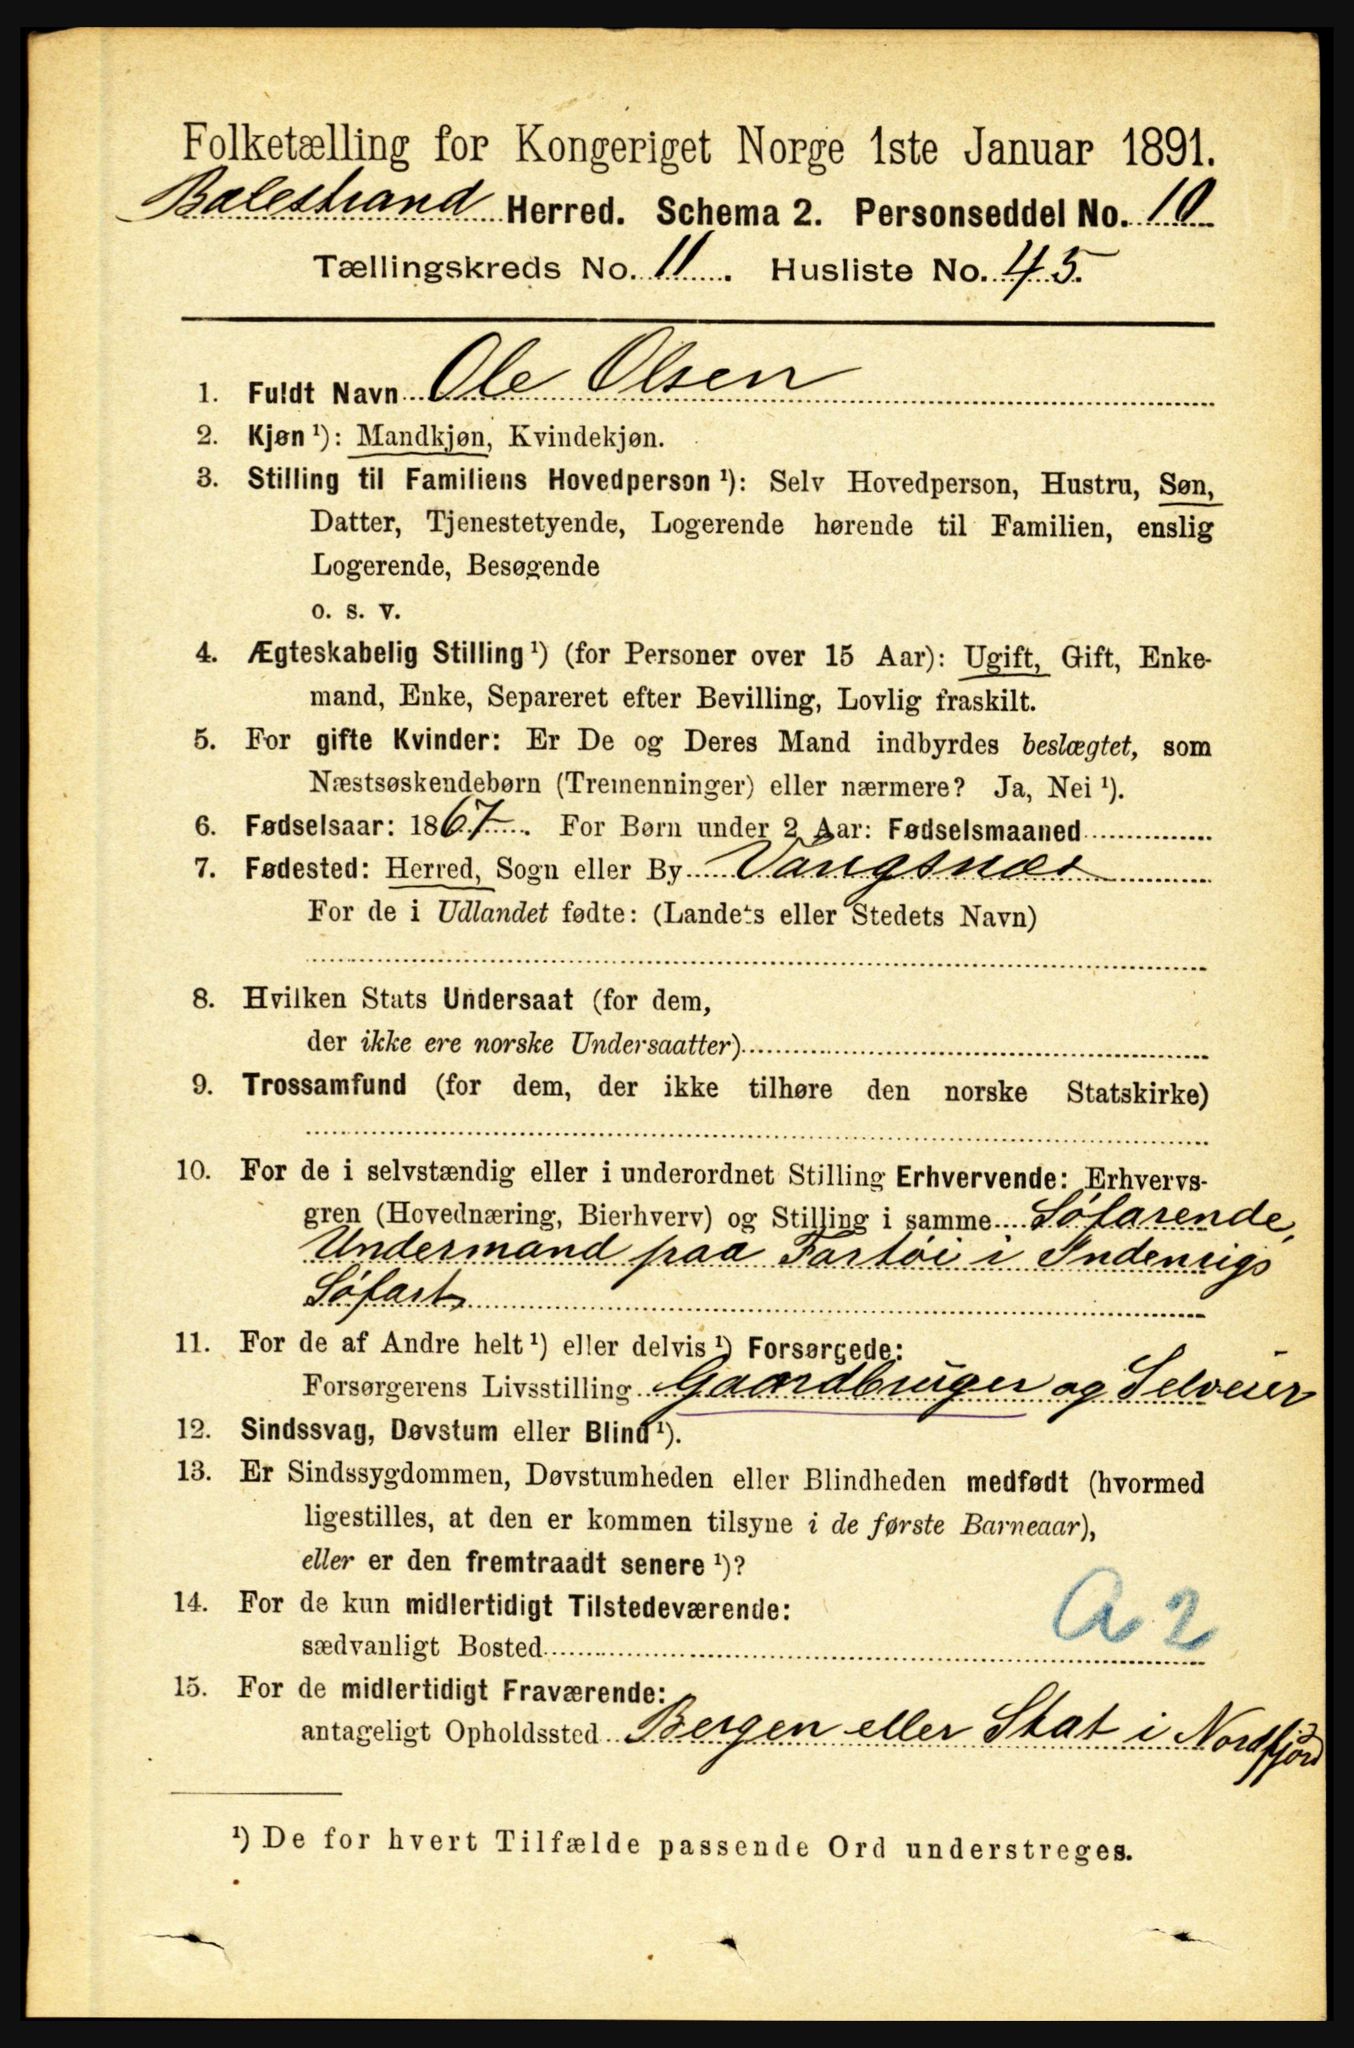 Folketælling for Kongeriget Norge 1ste Januar 1891.
Balestrand Herred. Schema 2. Personseddel No. 10
Tællingskreds No. 11. Husliste No. 45.
1. Fuldt Navn Ole Olsen
2. Kjøn ¹): Mandkjøn, Kvindekjøn.
3. Stilling til Familiens Hovedperson ¹): Selv Hovedperson, Hustru, Søn,
Datter, Tjenestetyende, Logerende hørende til Familien, enslig
Logerende, Besøgende
o. s. v.
4. Ægteskabelig Stilling ¹) (for Personer over 15 Aar): Ugift, Gift, Enke-
mand, Enke, Separeret efter Bevilling, Lovlig fraskilt.
5. For gifte Kvinder: Er De og Deres Mand indbyrdes beslægtet, som
Næstsøskendebørn (Tremenninger) eller nærmere? Ja, Nei ¹).
6. Fødselsaar: 1867. For Børn under 2 Aar: Fødselsmaaned
7. Fødested: Herred, Sogn eller By Vangsnæs
For de i Udlandet fødte: (Landets eller Stedets Navn)
8. Hvilken Stats Undersaat (for dem,
der ikke ere norske Undersaatter)
9. Trossamfund (for dem, der ikke tilhøre den norske Statskirke)
10. For de i selvstændig eller i underordnet Stilling Erhvervende: Erhvervs-
gren (Hovednæring, Bierhverv) og Stilling i samme Søfarende,
Undermand paa Fartøi i Indenrigs
Søfart
11. For de af Andre helt ¹) eller delvis ¹) Forsørgede:
Forsørgerens Livsstilling Gaardbruger og Selveier
12. Sindssvag, Døvstum eller Blind ¹).
13. Er Sindssygdommen, Døvstumheden eller Blindheden medfødt (hvormed
ligestilles, at den er kommen tilsyne i de første Barneaar),
eller er den fremtraadt senere ¹)?
14. For de kun midlertidigt Tilstedeværende:
sædvanligt Bosted
A 2
15. For de midlertidigt Fraværende:
antageligt Opholdssted Bergen eller Stat i Nordfjord
¹) De for hvert Tilfælde passende Ord understreges.